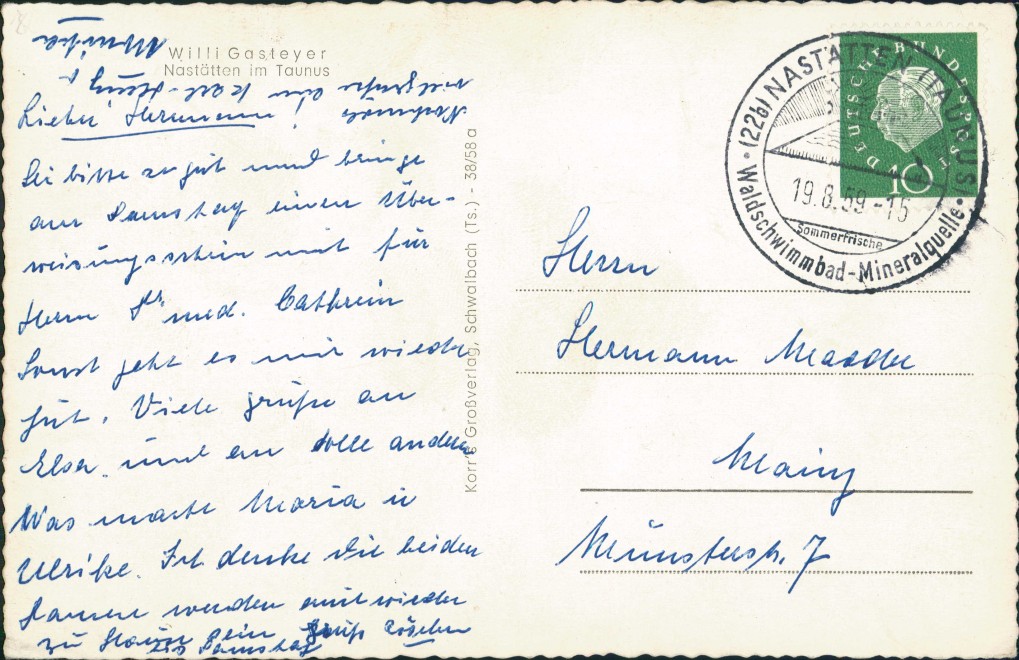 Willi Gasteyer
Nastätten im Taunus
Lieber Hermann!
Sei bitte so gut und bringe
am Samstag einen Über-
weisungsschein mit für
Herrn Dr. med. Cathrein
Sonst geht es mir wieder
gut. Viele grüße an
Elsa und an alle andern
Was macht Maria u
Ulrike. Ich denke die beiden
Damen werden auch wieder
zu Hause sein Gruß
bis Samstag
Nochmals
viele grüße
Korr's Großverlag, Schwalbach (Ts.) - 38/58 a
(22b) NASTÄTTEN (TAUNUS)
19.8.59-15
Sommerfrische
Waldschwimmbad-Mineralquelle
DEUTSCHE BUNDESPOST
10
Herrn
Hermann
Mainz
Münsterstr. 7